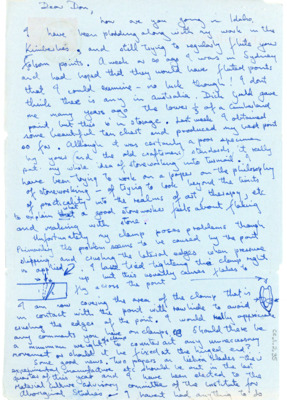 Dear Don,
how are you going in Idaho.
I have been plodding along with my work in the
Kimberleys, and still trying to regularly flute your
Folsom points. A week or so ago I was in Sydney
and had hoped that they would have fluted points
that I could examine - no luck though. I don't
think there is any in Australia. Dick Gould gave
me many years ago the lower ½ of a Cumberland
point, but this is in storage. Last week I obtained
some beautiful tan chert and produced my best point
so far. Although it was certainly a poor specimen
by yours (and the old craftsmen) standards, it really
put my whole idea of stoneworking into turmoil. I
have been trying to work on a paper on the philosophy
of stoneworking - of trying to look beyond the limits
of practicality into the realms of art, therapy, etc
to explain what a good stoneworker feels about flaking
and realising with stone.
Unfortunately my clamp poses problems though.
Primarily the problem seems to be caused by the point
slipping and crushing the lateral edges when pressure
is applied. I have tried tightening the clamp right
up but this usually causes flakes to
fly across the point.
I am now covering the area of the clamp that is
in contact with the point with rawhide to avoid
crushing the edges of the points. I would really appreciate
any comments you have on clamps. Should there be
minimum to counteract any unnecessary
movement or should it be fixed at the hinged end?
Some good news: two papers on Leilira blades - their
experimental manufacture, etc should be out in the last
quarter of this year and I have been elected to the
material culture advisory committee of the institute for
Aboriginal Studies. I haven't had anything to do